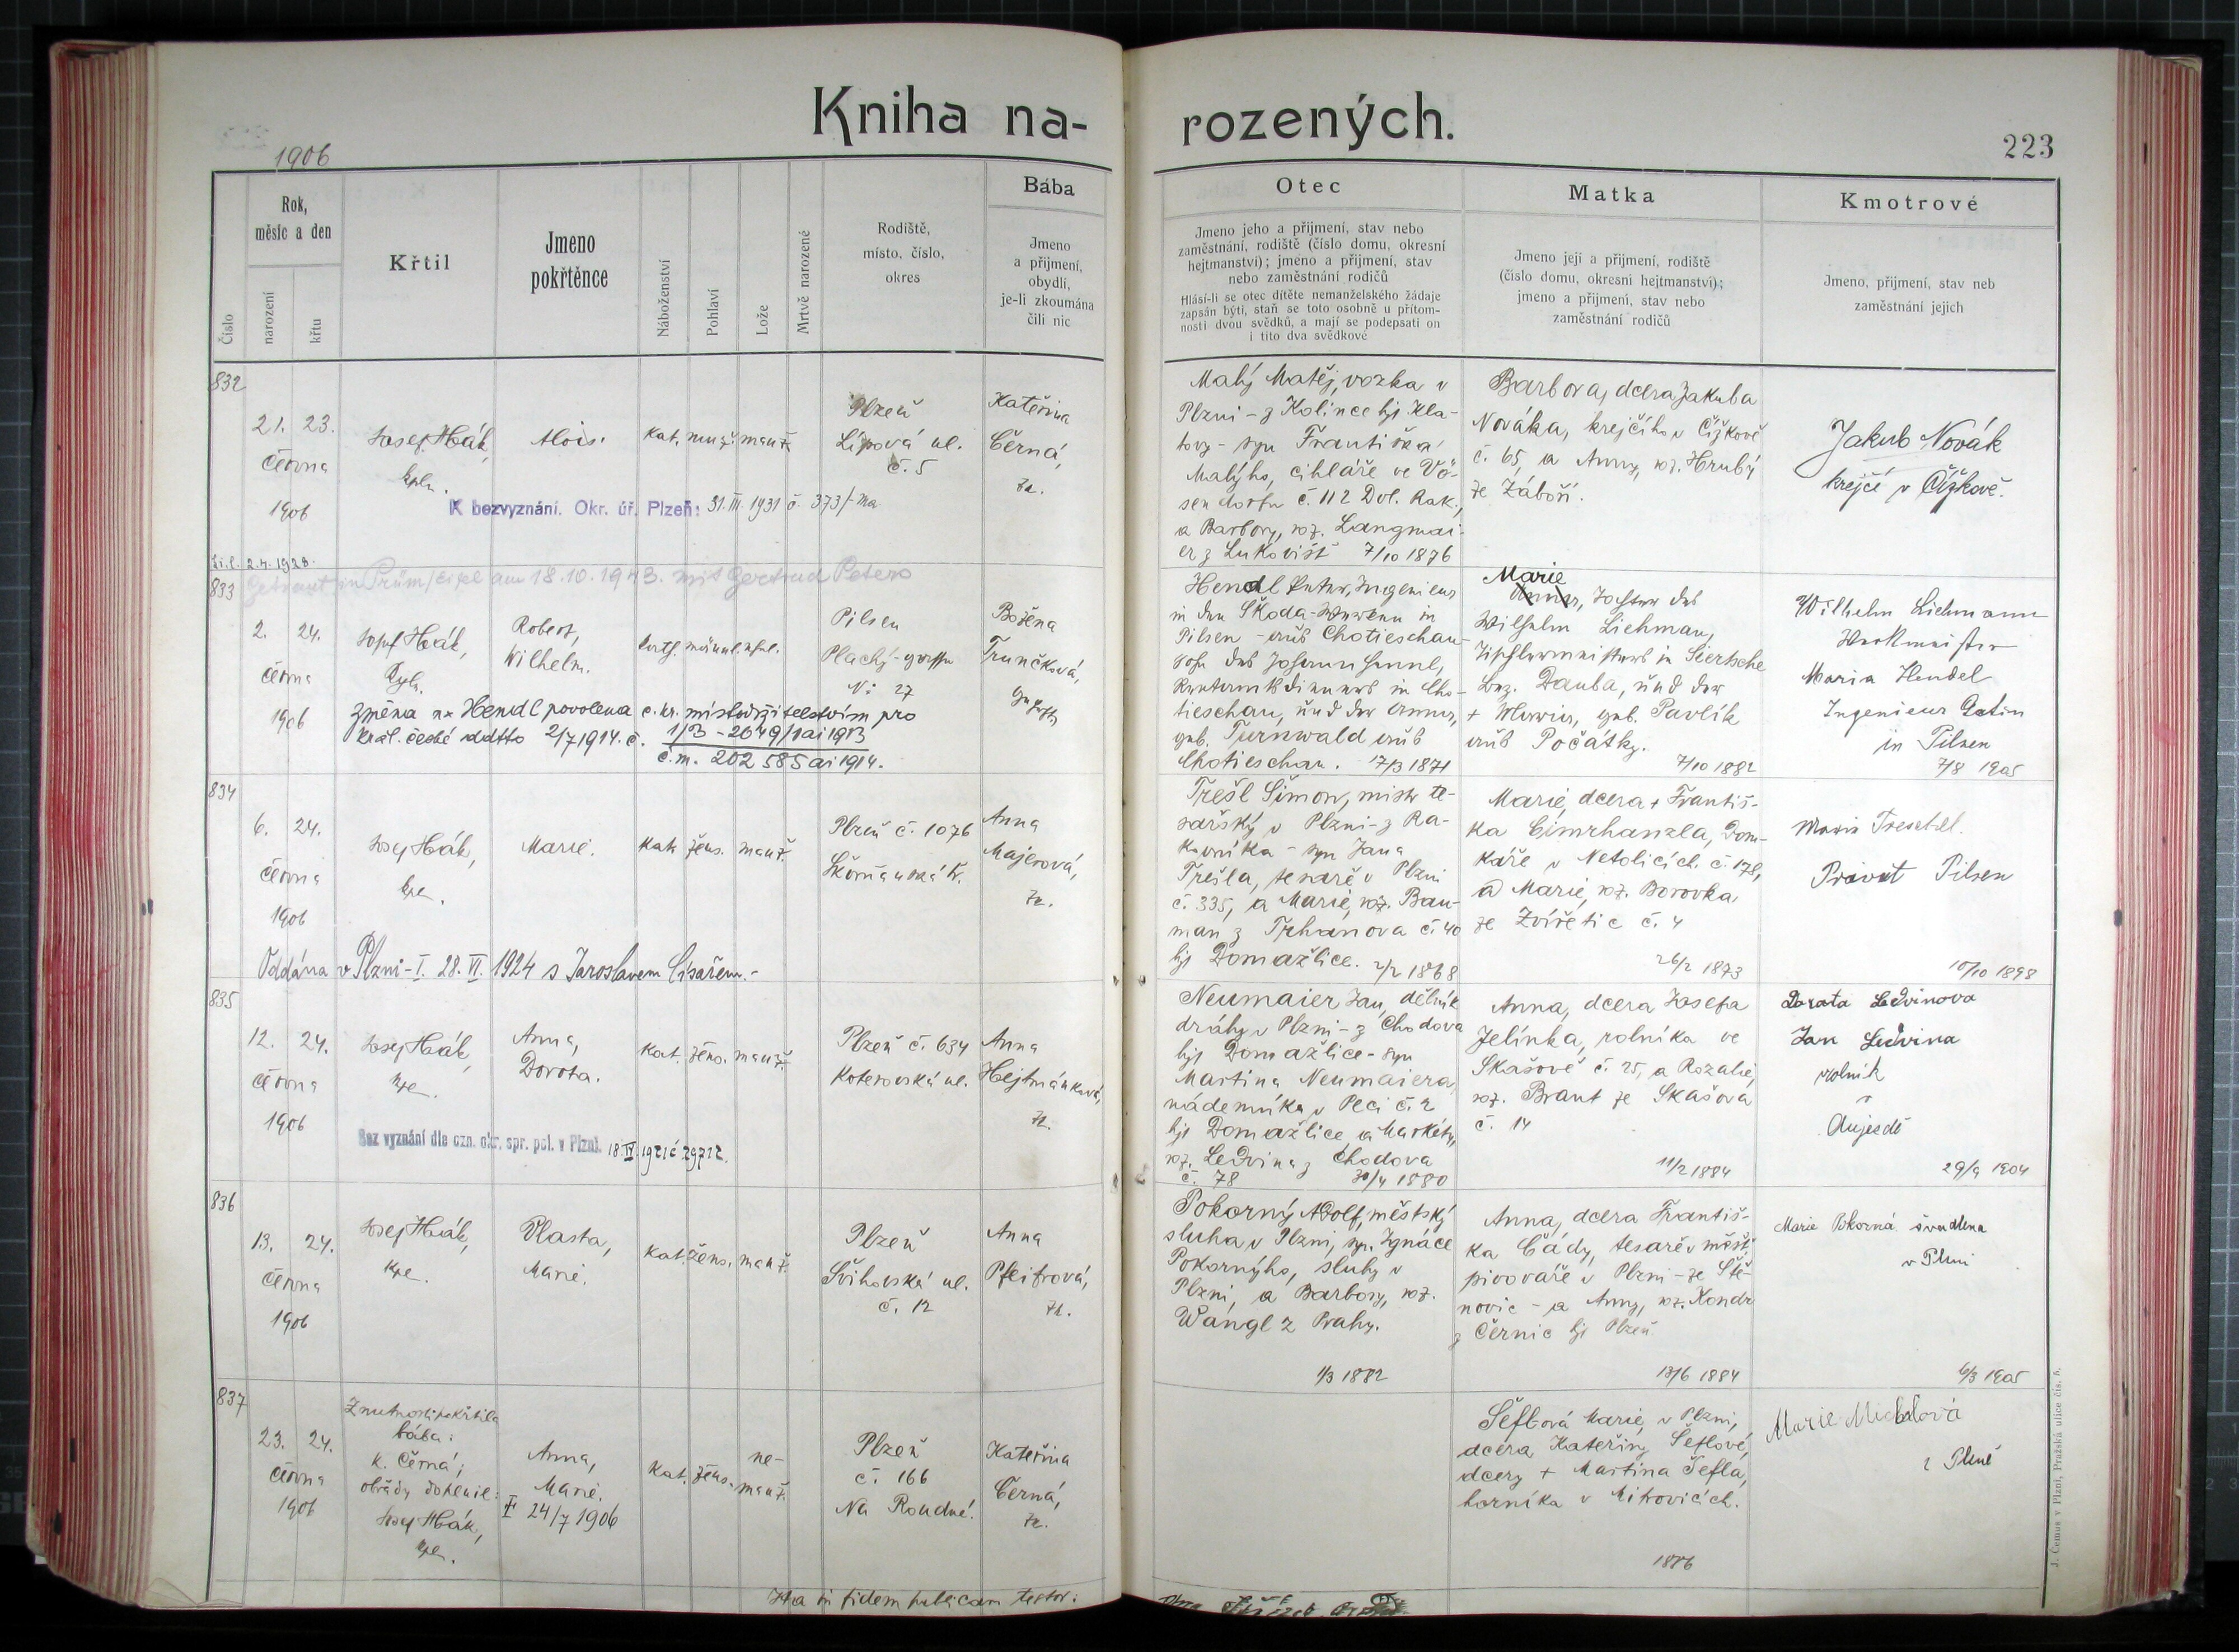 Kniha na-
rozených.
1906
223
Rok,
měsíc a den
Křtil
Jmeno
pokřtěnce
Rodiště,
místo, číslo,
okres
Bába
Jmeno
a přijmení,
obydlí,
je-li zkoumána
čili nic
Číslo
narození
křtu
Náboženství
Pohlaví
Lože
Mrtvě narozené
Otec
Jmeno jeho a přijmení, stav nebo
zaměstnání, rodiště (číslo domu, okresní
hejtmanství); jmeno a přijmení, stav
nebo zaměstnání rodičů
Hlásí-li se otec dítěte nemanželského žádaje
zapsán býti, staň se toto osobně u přítom-
nosti dvou svědků, a mají se podepsati on
i tito dva svědkové
Matka
Jmeno její a přijmení, rodiště
(číslo domu, okresní hejtmanství);
jmeno a přijmení, stav nebo
zaměstnání rodičů
Kmotrové
Jmeno, přijmení, stav neb
zaměstnání jejich
832
21. 23.
června
1906
Josef Hák,
kpln.
Alois.
kat. muž. manž.
Plzeň
Lípová ul.
č. 5
Kateřina
Černá,
zk.
K bezvyznání. Okr. úř. Plzeň: 31. III. 1931 č. 373/-ma
Malý Matěj, vozka v
Plzni - z Kolince hjt Kla-
tovy - syn Františka
Malýho, cihláře ve Vö-
sendorfu č. 112 Dol. Rak.,
a Barbory, roz. Langmai-
er z Lukovišť 7/10 1876
Barbora, dcera Jakuba
Nováka, krejčího v Čížkově
č. 65, a Anny, roz. Hrubý
ze Záboří.
Jakub Novák
krejčí v Čížkově.
2.4.1928.
833
Getraut in Prüm/Eifel am 18.10.1943. mit Gertrud Peters
2. 24.
června
1906
Josef Hák,
Kpln.
Robert,
Wilhelm.
Pilsen
Plachý-gasse
No 27
Božena
Trunčková,
Změna na Hendl povolena c. kr. místodržitelstvím pro
král. české ddtto 2/7 1914. č. 1/B - 2649/1 ai 1913
č. m. 202 585 ai 1914.
Hendl Peter, Ingenieur
in den Škoda-Werken in
Pilsen - aus Chotieschau
Sohn des Johann Hendl,
in Cho-
tieschau, und der Anna,
geb. Turnwald aus
Chotieschau. 17/3 1871
Marie
Anna, Tochter des
Wilhelm Liehman,
in Siertsche
Bez. Dauba, und der
+ Maria, geb. Pavlík
aus Počátky.
7/10 1882
Wilhelm Liehmann
Werkmeister
Maria Hendel
Ingenieur Gatin
in Pilsen
7/8 1905
834
6. 24.
června
1906
Josef Hák,
kpl.
Marie.
kat. žens. manž.
Plzeň č. 1076
Škorňanská tř.
Anna
Majerová,
zk.
Oddána v Plzni-I. 28. VI. 1924 s Jaroslavem Císařem.-
Trešl Šimon, mistr te-
sařský v Plzni - z Ra-
kovníka - syn Jana
Trešla, tesaře v Plzni
č. 335, a Marie, roz. Bau-
man z Trhanova č. 40
hjt Domažlice. 2/2 1868
Marie, dcera + Františ-
ka Cimrhanzla, Dom-
káře v Netolicích č. 178,
a Marie, roz. Borovka
ze Zvířetic č. 4
26/2 1873
Marie Treschl.
Privat Pilsen
10/10 1898
835
12. 24.
června
1906
Josef Hák,
kpl.
Anna,
Dorota.
kat. žens. manž.
Plzeň č. 634
Koterovská ul.
Anna
Hejtmánková,
zk.
Bez vyznání dle ozn. okr. spr. pol. v Plzni. 18. IV. 1921 č 29712.
Neumaier Jan, dělník
dráhy v Plzni - z Chodova
hjt Domažlice - syn
Martina Neumaiera,
nádeníka v Peci č. 2
hjt Domažlice, a Markéty,
roz. Ledvina z Chodova
č. 78 30/4 1880
Anna, dcera Josefa
Jelínka, rolníka ve
Skašově č. 25, a Rozalie,
roz. Brant ze Skašova
č. 14
11/2 1884
Dorata Ledvinova
Jan Ledvina
rolník
v
Aujezdě
29/9 1904
836
13. 24.
června
1906
Josef Hák,
kpl.
Vlasta,
Marie.
kat. žens. manž.
Plzeň
Švihovská ul.
č. 12
Anna
Pfeitrová,
zk.
Pokorný Adolf, městský
sluha v Plzni, syn Ignáce
Pokorného, sluhy v
Plzni, a Barbory, roz.
Wangl z Prahy.
1/3 1882
Anna, dcera Františ-
ka Čády, tesaře v měšť.
pivováře v Plzni - ze Ště-
novic - a Anny, roz. Kondr
z Černic hjt Plzeň
13/6 1884
Marie Pokorná švadlena
v Plzni
6/3 1905
837
23. 24.
června
1906
Z nutnosti pokřtila
bába:
K. Černá;
obřady doplnil:
Josef Hák,
kpl.
Anna,
Marie.
† 24/7 1906
kat. žens. ne-
manž.
Plzeň
č. 166
Na Roudné.
Kateřina
Černá,
zk.
Šeflová Marie, v Plzni,
dcera Kateřiny Šeflové,
dcery + Martina Šefla,
horníka v Mitrovicích.
1886
Marie Michalová
z Plzně
Ita in fidem publicam testor:
J. Čemus v Plzni, Pražská ulice čís. 5.